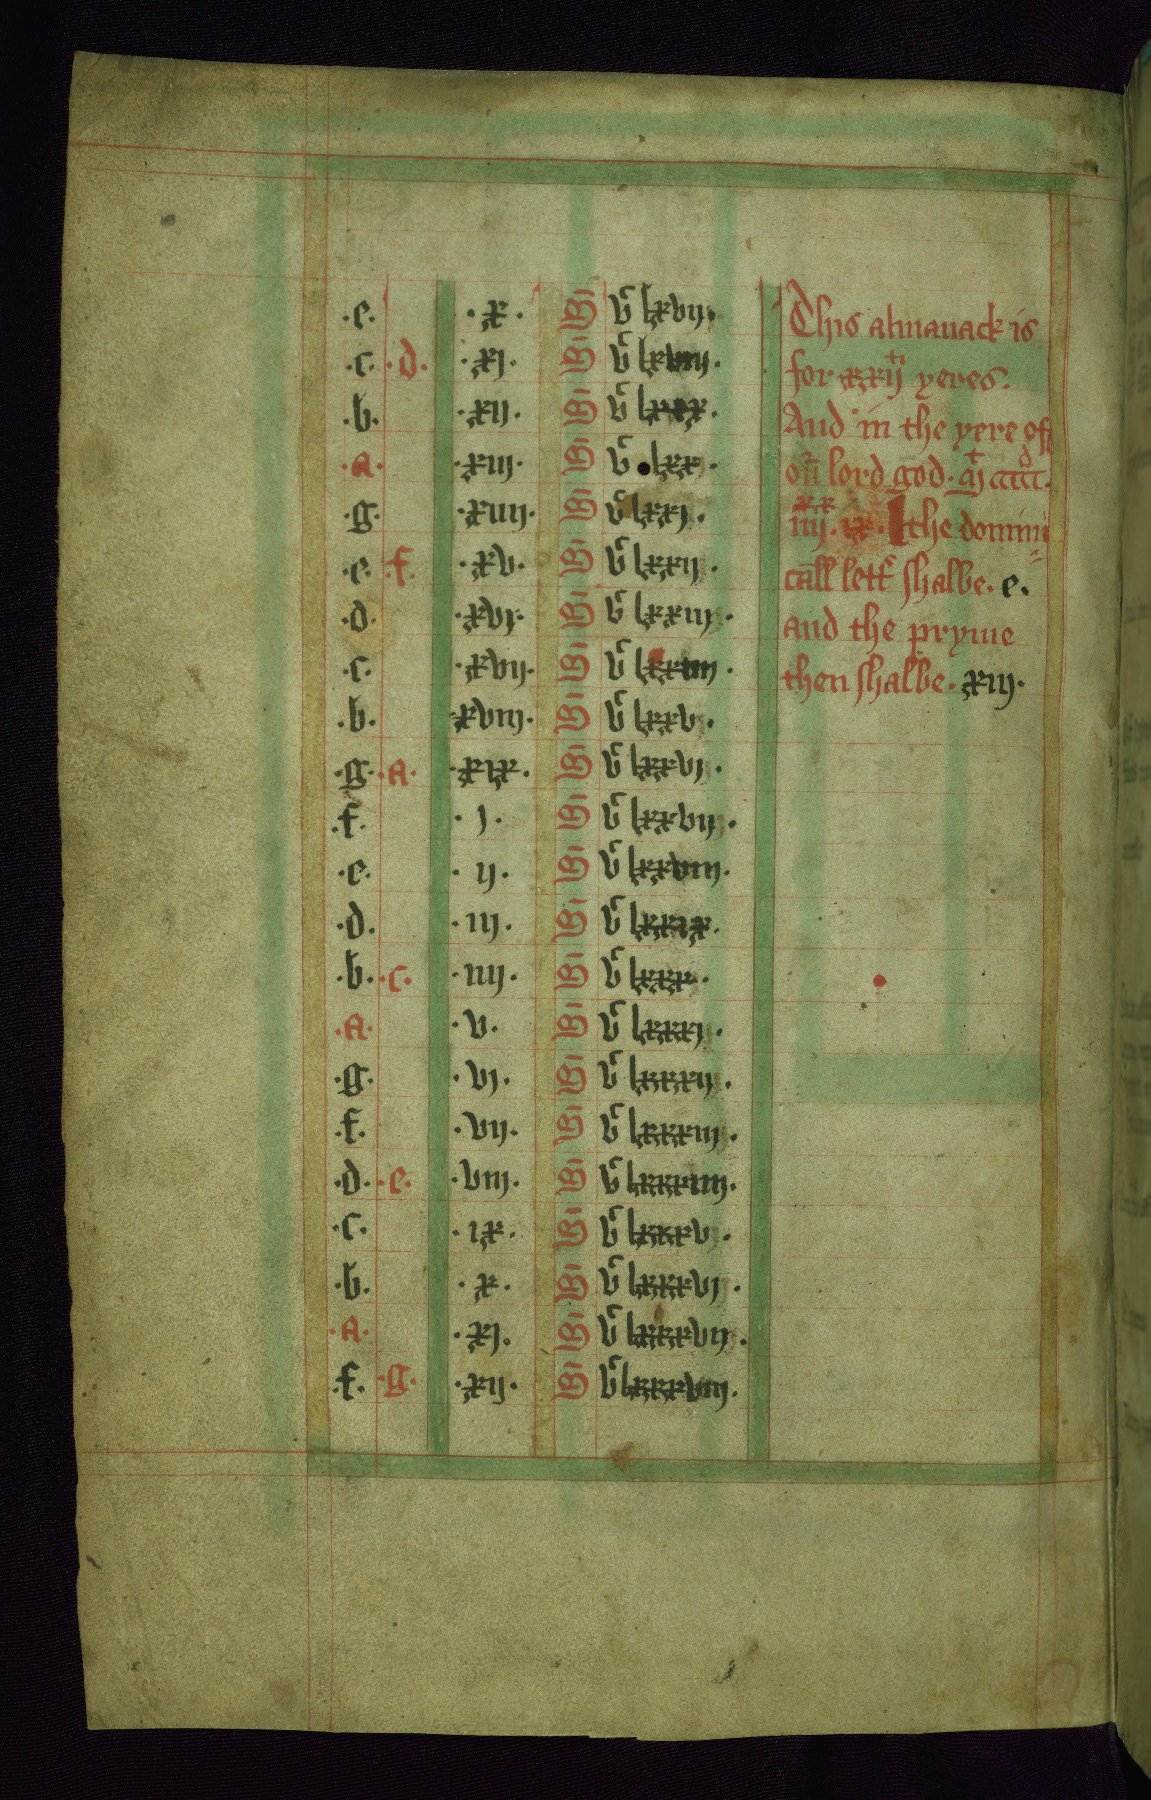 .e. .x. M vc lxvij.
.c. .d. .xj. M vc lxviij.
.b. .xij. M vc lxix.
.a. .xiij. M vc lxx.
.g. .xiiij. M vc lxxj.
.e. .f. .xv. M vc lxxij.
.d. .xvj. M vc lxxiij.
.c. .xvij. M vc lxxiiij.
.b. .xviij. M vc lxxv.
.g. .A. .xix. M vc lxxvj.
.f. .j. M vc lxxvij.
.e. .ij. M vc lxxviij.
.d. .iij. M vc lxxix.
.b. .c. .iiij. M vc lxxx.
.A. .v. M vc lxxxj.
.g. .vj. M vc lxxxij.
.f. .vij. M vc lxxxiij.
.d. .e. .viij. M vc lxxxiiij.
.c. .ix. M vc lxxxv.
.b. .x. M vc lxxxvj.
.A. .xj. M vc lxxxvij.
.f. .g. .xij. M vc lxxxviij.
This almanack is
for xxijti yeres.
And in the yere of
our lord god.
iiijxx. ix. the domini
call lettr shalbe. e.
and the pryme
then shalbe. xiij.